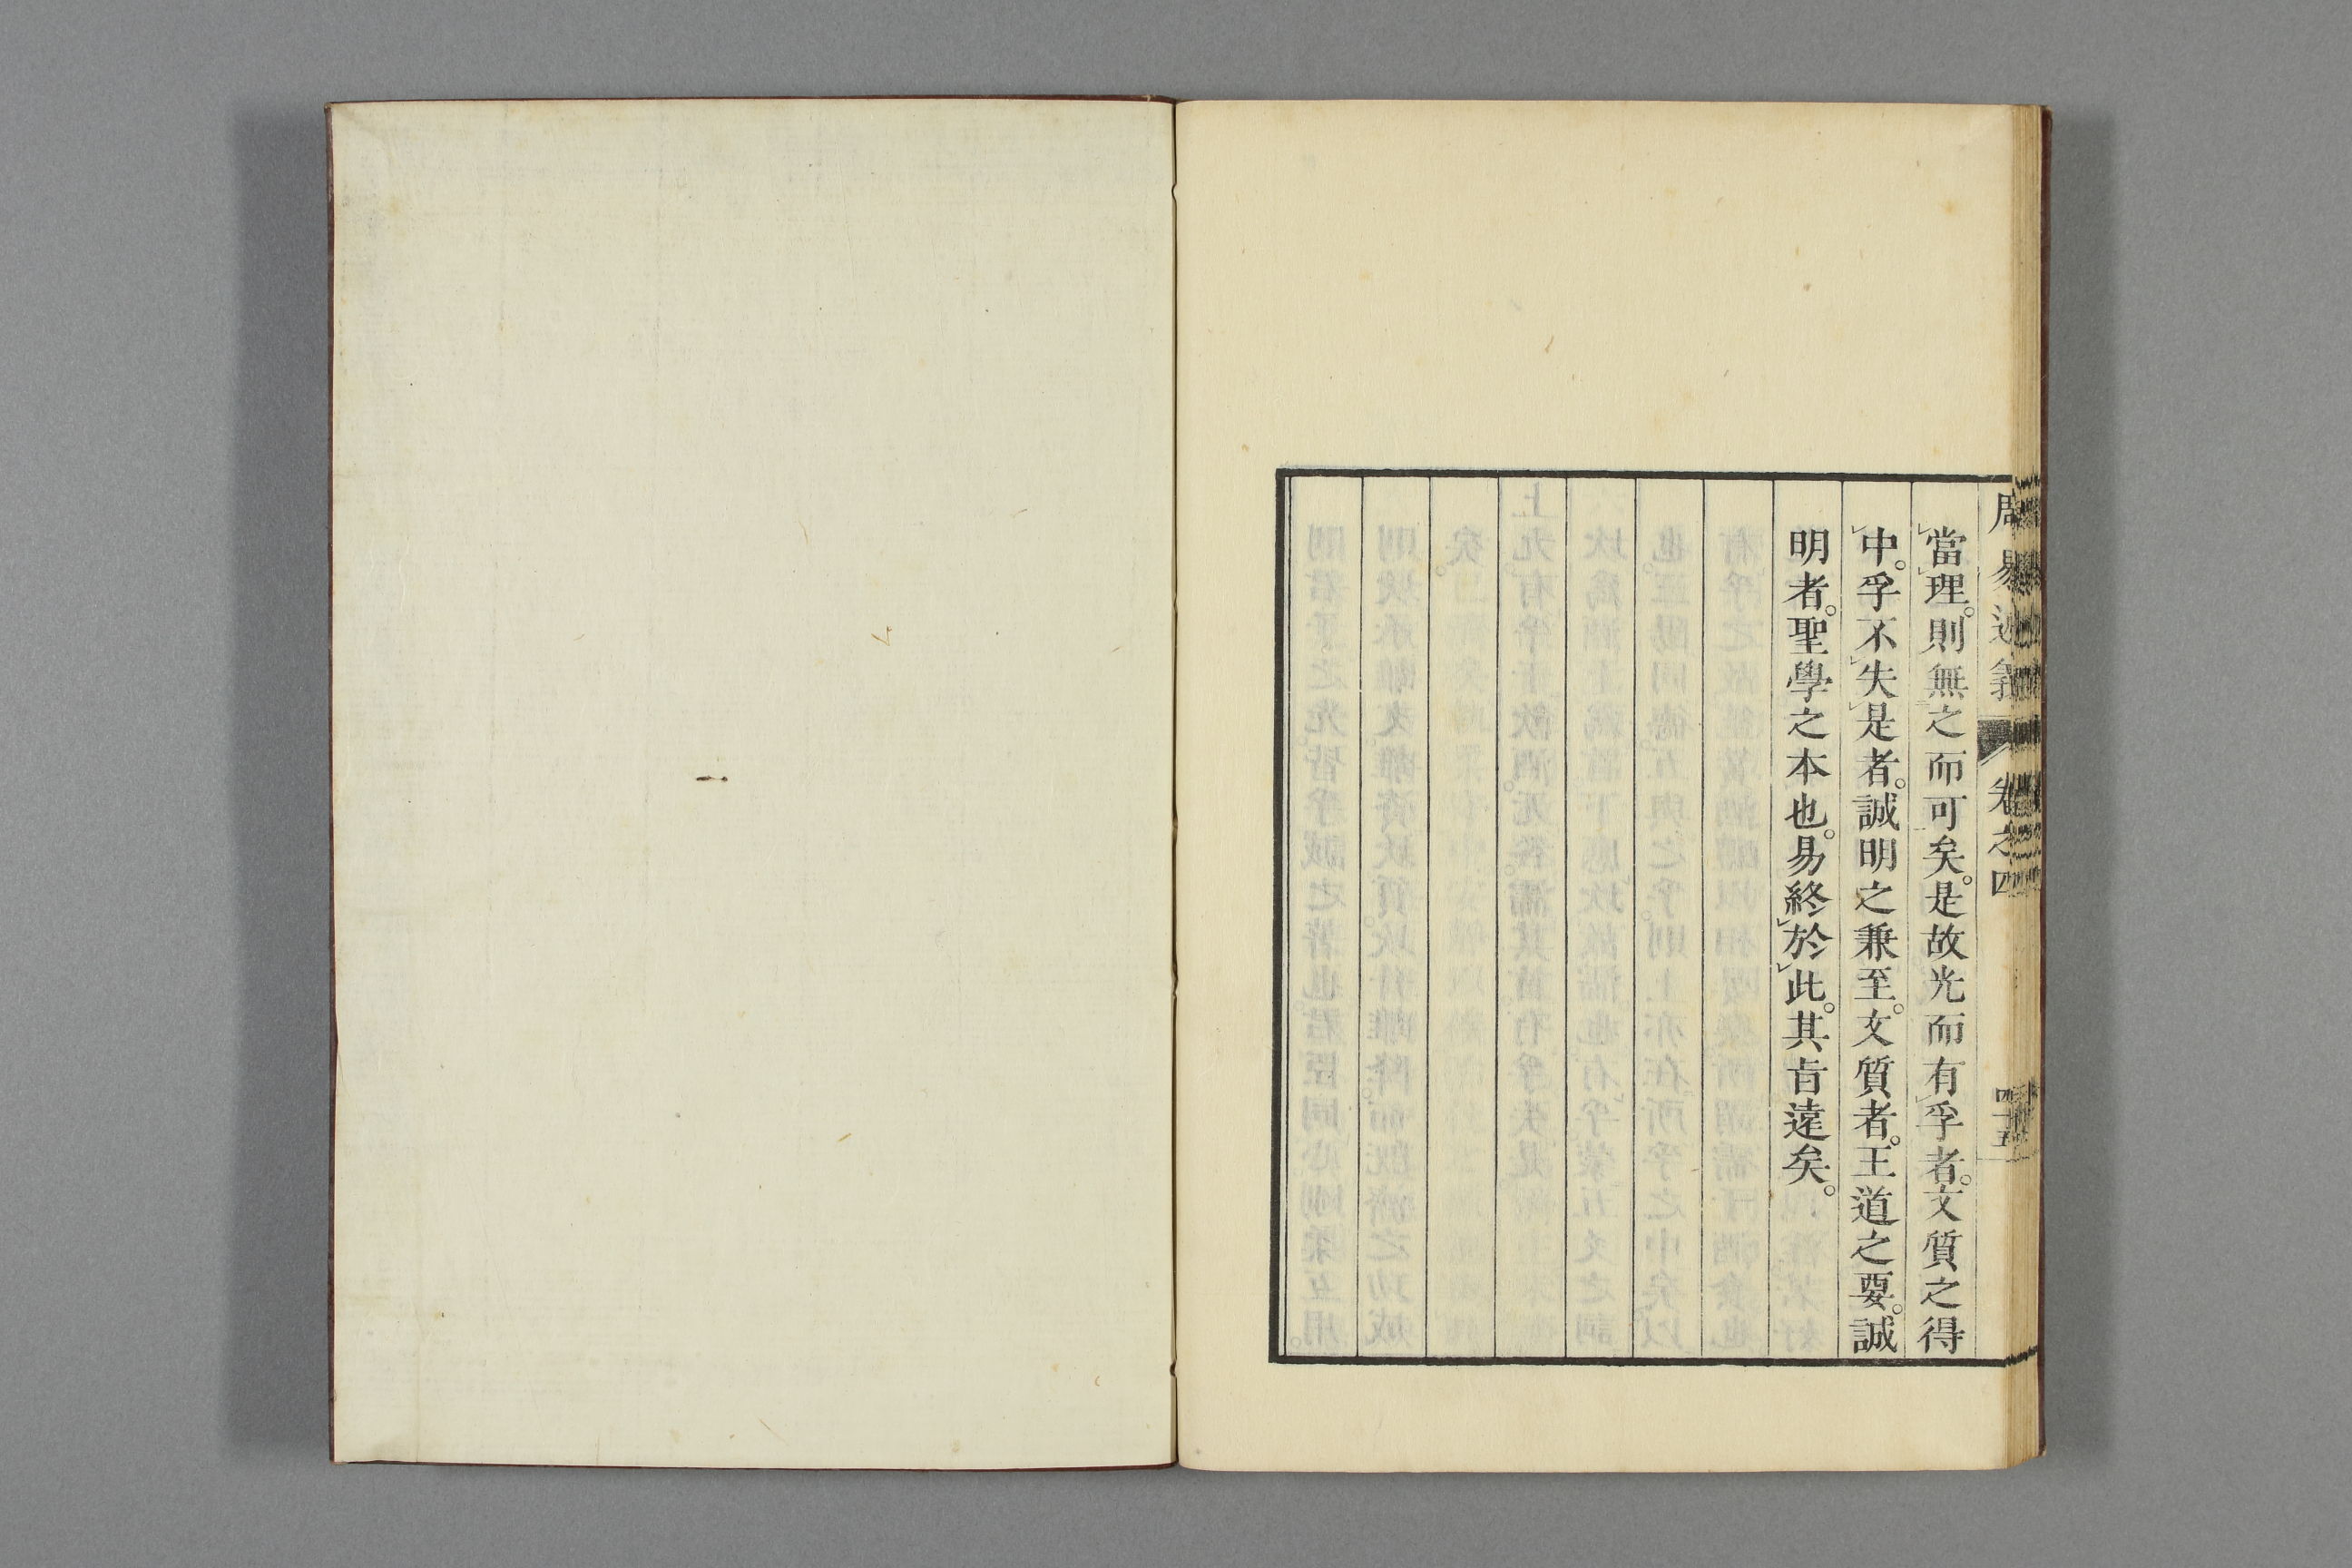 周易述義 卷之四 四十五
當理。則無之而可矣。是故光而有孚者。文質之得
中。孚不失是者。誠明之兼至。文質者。王道之要。誠
明者。聖學之本也。易終於此。其旨遠矣。